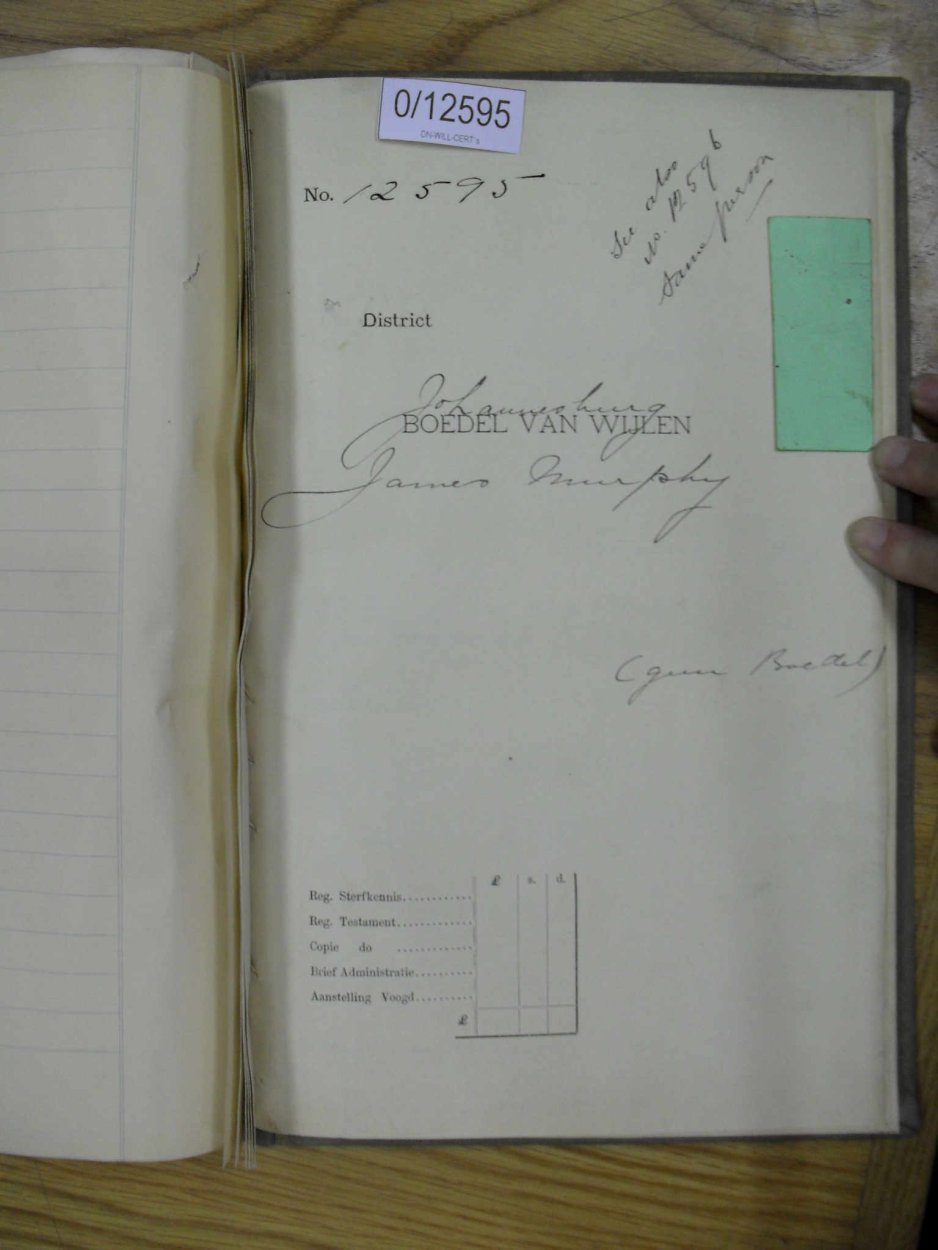 0/12595
DN-WILL-CERT's
No. 12595
See also
No. 12596
Same person
District
Johannesburg
BOEDEL VAN WIJLEN
James Murphy
(geen Boedel)
£ s. d.
Reg. Sterfkennis............
Reg. Testament............
Copie do ............
Brief Administratie..........
Aanstelling Voogd..........
£